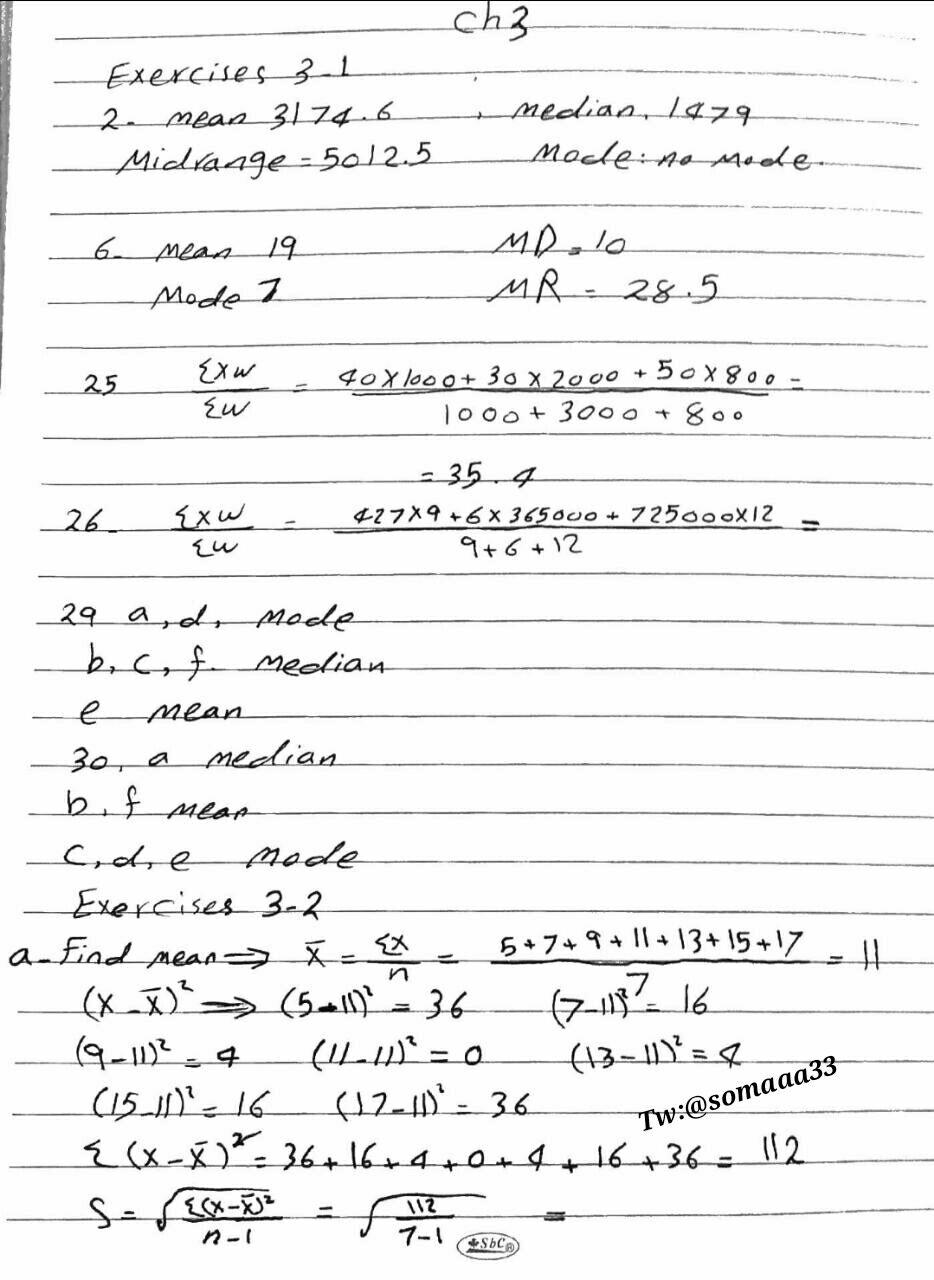 ch3
Exercises 3-1
2- mean 3174.6 , median, 1479
Midrange = 5012.5 Mode: no mode.
6- mean 19 MD = 10
Mode 7 MR = 28.5
25 Σxw/Σw = (40×1000 + 30×2000 + 50×800)/(1000 + 3000 + 800) =
= 35.4
26- Σxw/Σw = (427×9 + 6×365000 + 725000×12)/(9+6+12) =
29 a, d, mode
b, c, f. median
e mean
30, a median
b, f mean
c, d, e mode
Exercises 3-2
a- Find mean ⇒ x̄ = Σx/n = (5+7+9+11+13+15+17)/7 = 11
(x-x̄)² ⇒ (5-11)² = 36 (7-11)² = 16
(9-11)² = 4 (11-11)² = 0 (13-11)² = 4
(15-11)² = 16 (17-11)² = 36
Tw:@somaaa33
Σ(x-x̄)² = 36+16+4+0+4+16+36 = 112
S = √(Σ(x-x̄)²/(n-1)) = √(112/(7-1)) =
SbC®